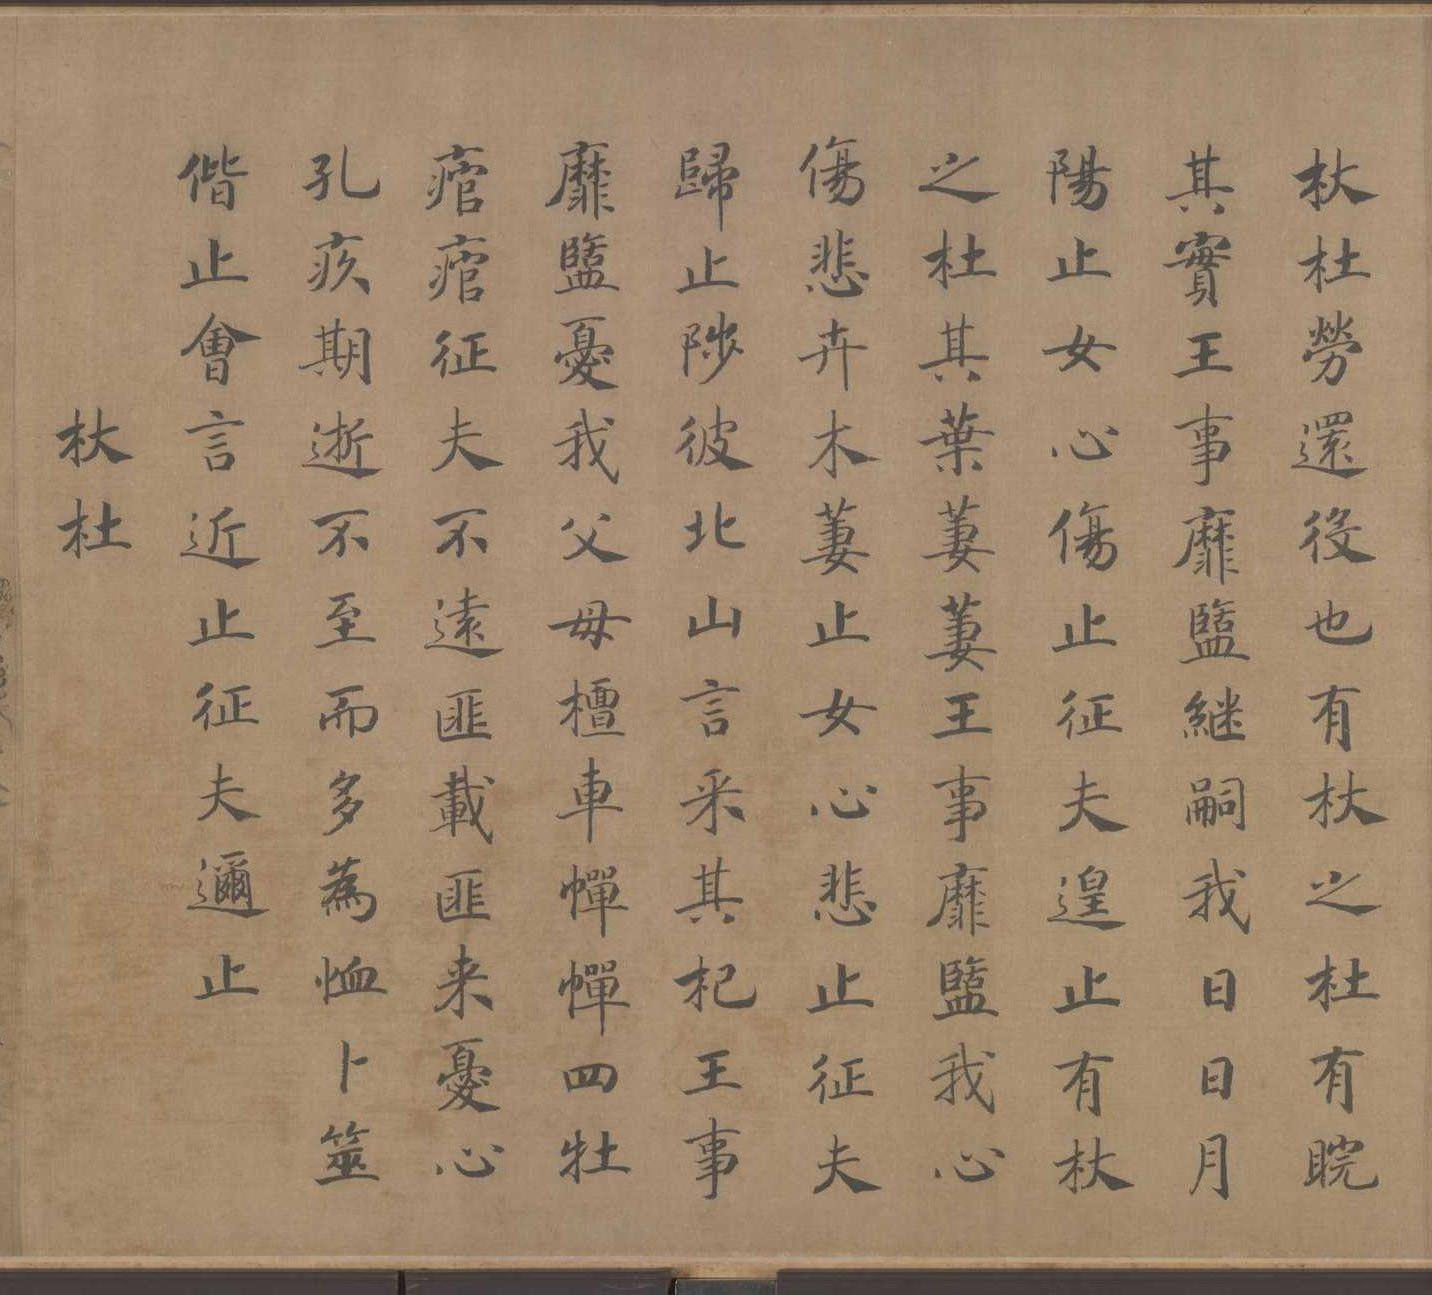 杕杜勞還役也有杕之杜有睆
其實王事靡盬繼嗣我日日月
陽止女心傷止征夫遑止有杕
之杜其葉萋萋王事靡盬我心
傷悲卉木萋止女心悲止征夫
歸止陟彼北山言采其杞王事
靡盬憂我父母檀車幝幝四牡
痯痯征夫不遠匪載匪来憂心
孔疚期逝不至而多為恤卜筮
偕止會言近止征夫邇止
杕杜